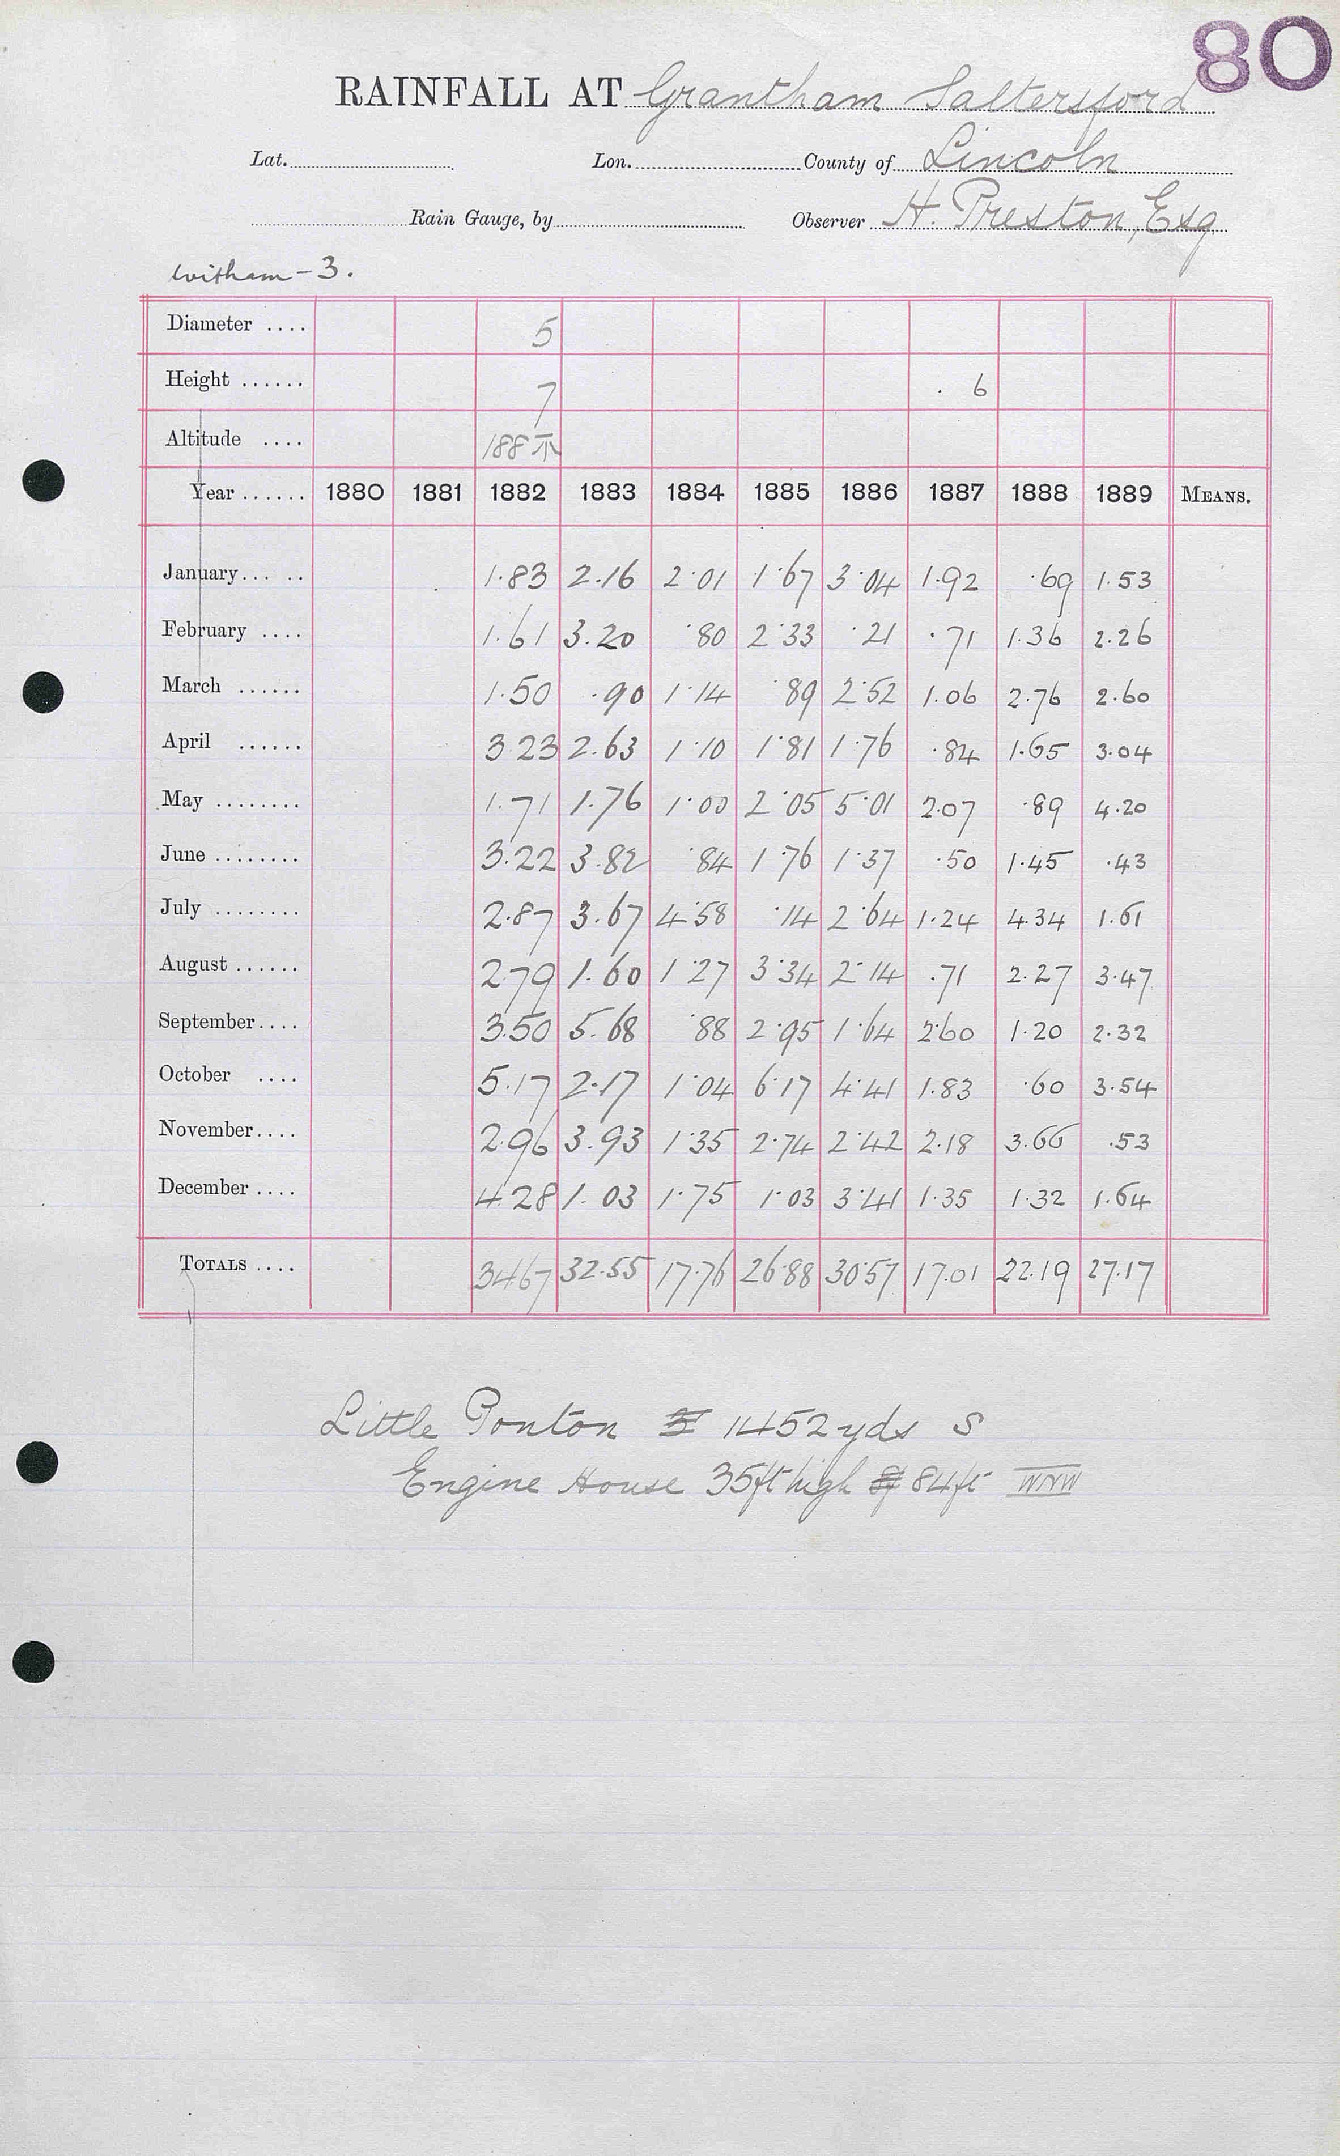 80
RAINFALL AT Grantham Saltersford
Lat. Lon. County of Lincoln
Rain Gauge, by Observer H. Preston, Esq
Witham - 3.
Diameter .... 5
Height ...... 7 . 6
Altitude .... 188
Year ...... 1880 1881 1882 1883 1884 1885 1886 1887 1888 1889 MEANS.
January... .. 1.83 2.16 2.01 1.67 3.04 1.92 .69 1.53
February .... 1.61 3.20 .80 2.33 .21 .71 1.36 2.26
March ...... 1.50 .90 1.14 .89 2.52 1.06 2.76 2.60
April ...... 3.23 2.63 1.10 1.81 1.76 .84 1.65 3.04
May ........ 1.71 1.76 1.00 2.05 5.01 2.07 .89 4.20
June ........ 3.22 3.82 .84 1.76 1.37 .50 1.45 .43
July ........ 2.87 3.67 4.58 .14 2.64 1.24 4.34 1.61
August ...... 2.79 1.60 1.27 3.34 2.14 .71 2.27 3.47
September.... 3.50 5.68 .88 2.95 1.64 2.60 1.20 2.32
October .... 5.17 2.17 1.04 6.17 4.41 1.83 .60 3.54
November.... 2.96 3.93 1.35 2.74 2.42 2.18 3.66 .53
December .... 4.28 1.03 1.75 1.03 3.41 1.35 1.32 1.64
TOTALS .... 34.67 32.55 17.76 26.88 30.57 17.01 22.19 27.17
Little Ponton 1452 yds S
Engine House 35ft high 84ft WNW